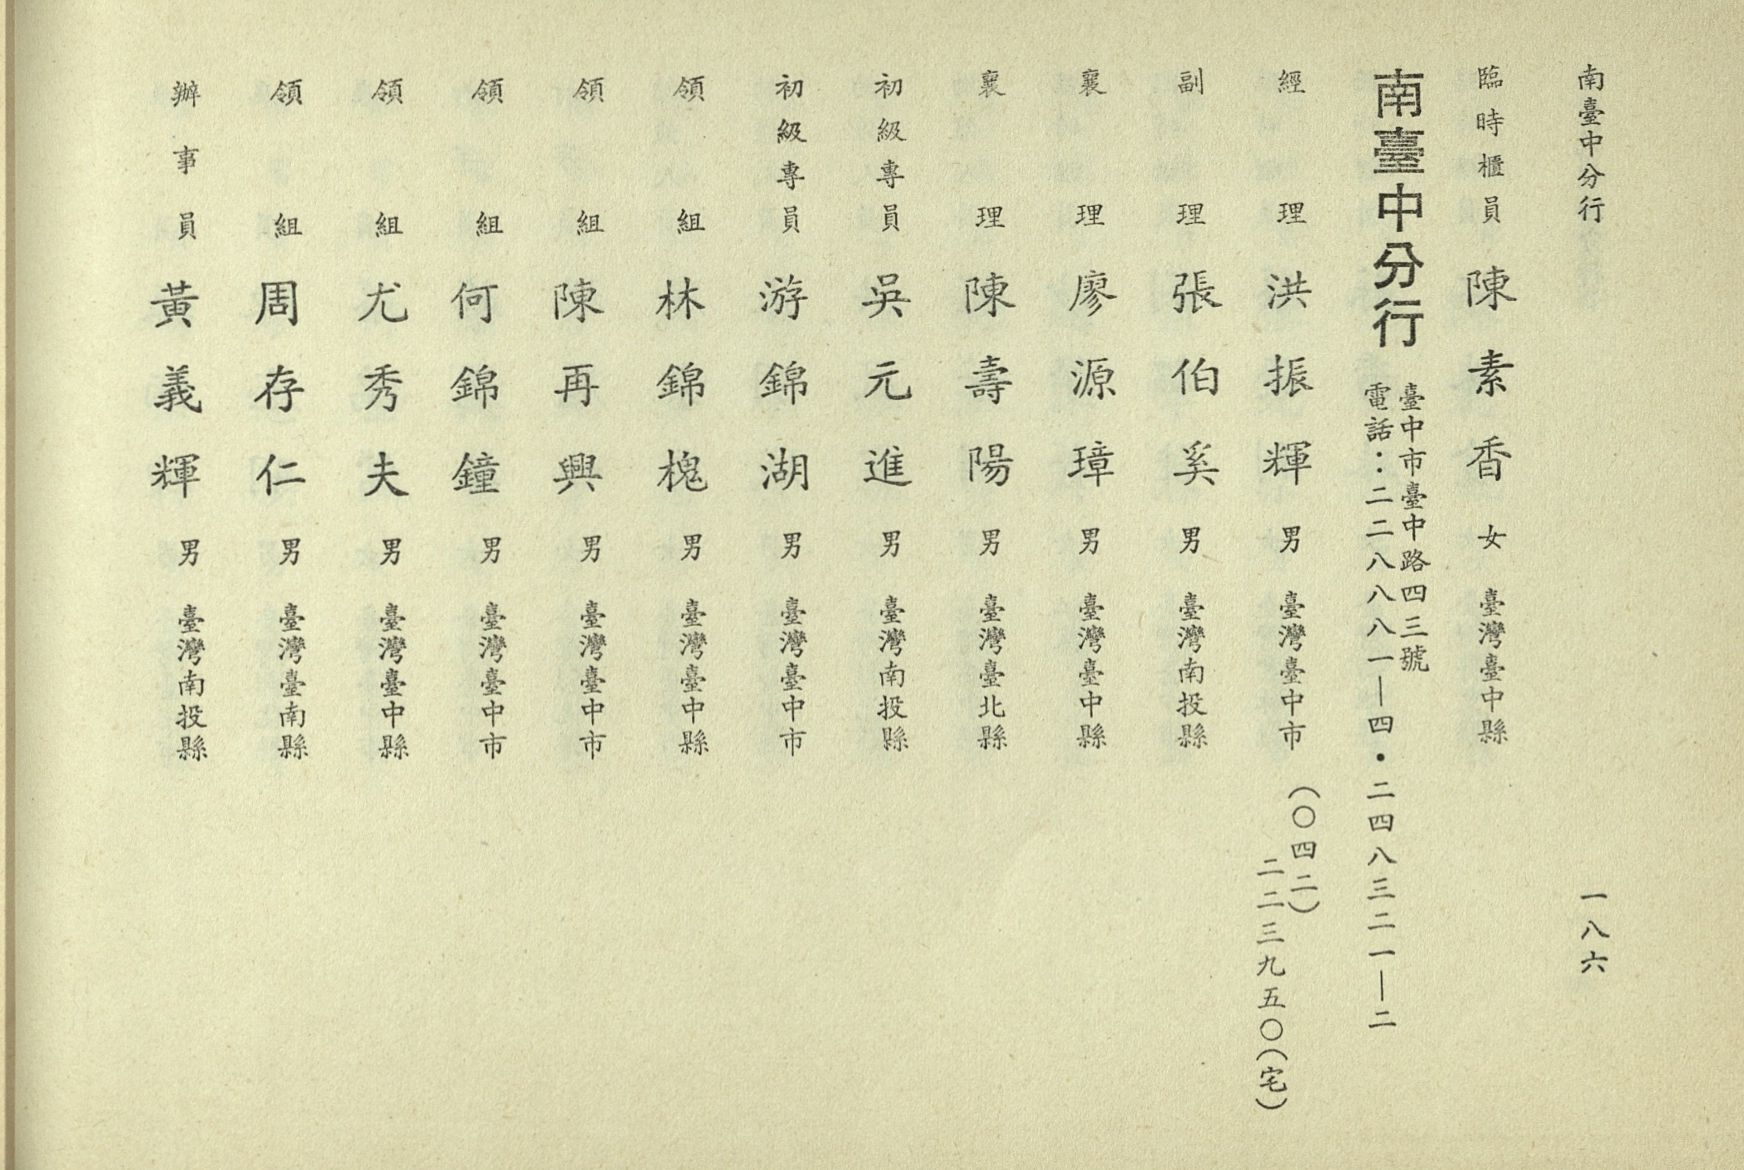 南臺中分行
一八六
臨時櫃員 陳素香 女 臺灣臺中縣
南臺中分行
臺中市臺中路四三號
電話：二二八八八一—四・二四八三二一—二
經理 洪振輝 男 臺灣臺中市
（〇四二）
二二三九五〇（宅）
副理 張伯奚 男 臺灣南投縣
襄理 廖源璋 男 臺灣臺中縣
襄理 陳壽陽 男 臺灣臺北縣
初級專員 吳元進 男 臺灣南投縣
初級專員 游錦湖 男 臺灣臺中市
領組 林錦槐 男 臺灣臺中縣
領組 陳再興 男 臺灣臺中市
領組 何錦鐘 男 臺灣臺中市
領組 尤秀夫 男 臺灣臺中縣
領組 周存仁 男 臺灣臺南縣
辦事員 黃義輝 男 臺灣南投縣